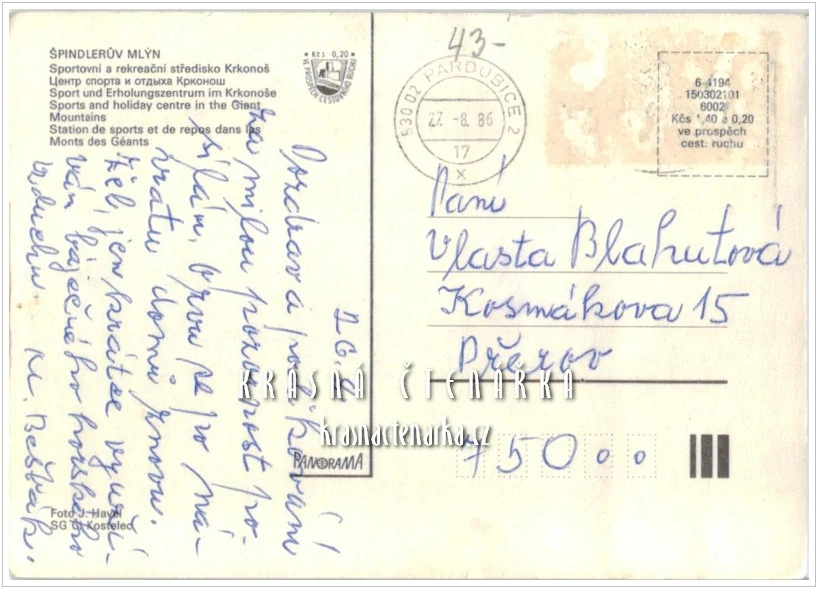 ŠPINDLERŮV MLÝN
Sportovní a rekreační středisko Krkonoš
Центр спорта и отдыха Крконош
Sport und Erholungszentrum im Krkonoše
Sports and holiday centre in the Giant
Mountains
Station de sports et de repos dans les
Monts des Géants
Kčs 0,20
VE PROSPĚCH CESTOVNÍHO RUCHU
43-
530 02 PARDUBICE 2
27. -8. 86
17
x
6-4194
150302101
6002
Kčs 1,40 a 0,20
ve prospěch
cest. ruchu
26. 8.
Pozdrav a poděkování
za milou pozornost po-
sílám, brvu se po ná-
vratu domů znovu.
Žel, jen krátce využí-
vám báječného horského
vzduchu M. Bešťák.
Paní
Vlasta Blahutová
Kosmákova 15
Přerov
750 00
KRÁSNÁ ČTENÁŘKA
krasnactenarka.cz
PANORAMA
Foto J. Havel
SG Č. Kostelec